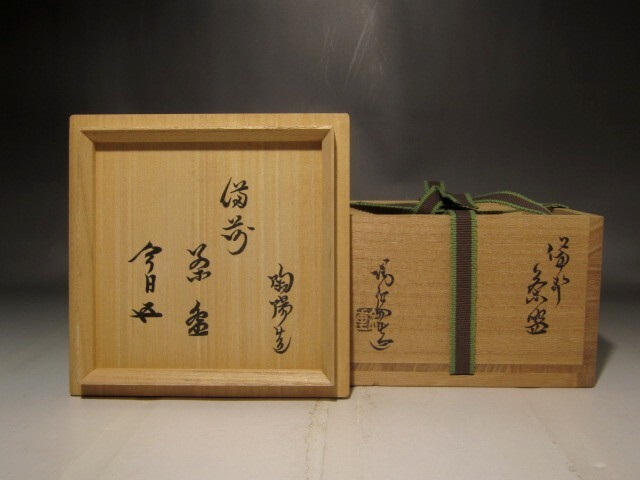 備前
茶盌
陶陽造
今日庵
備前
茶盌
陶陽造